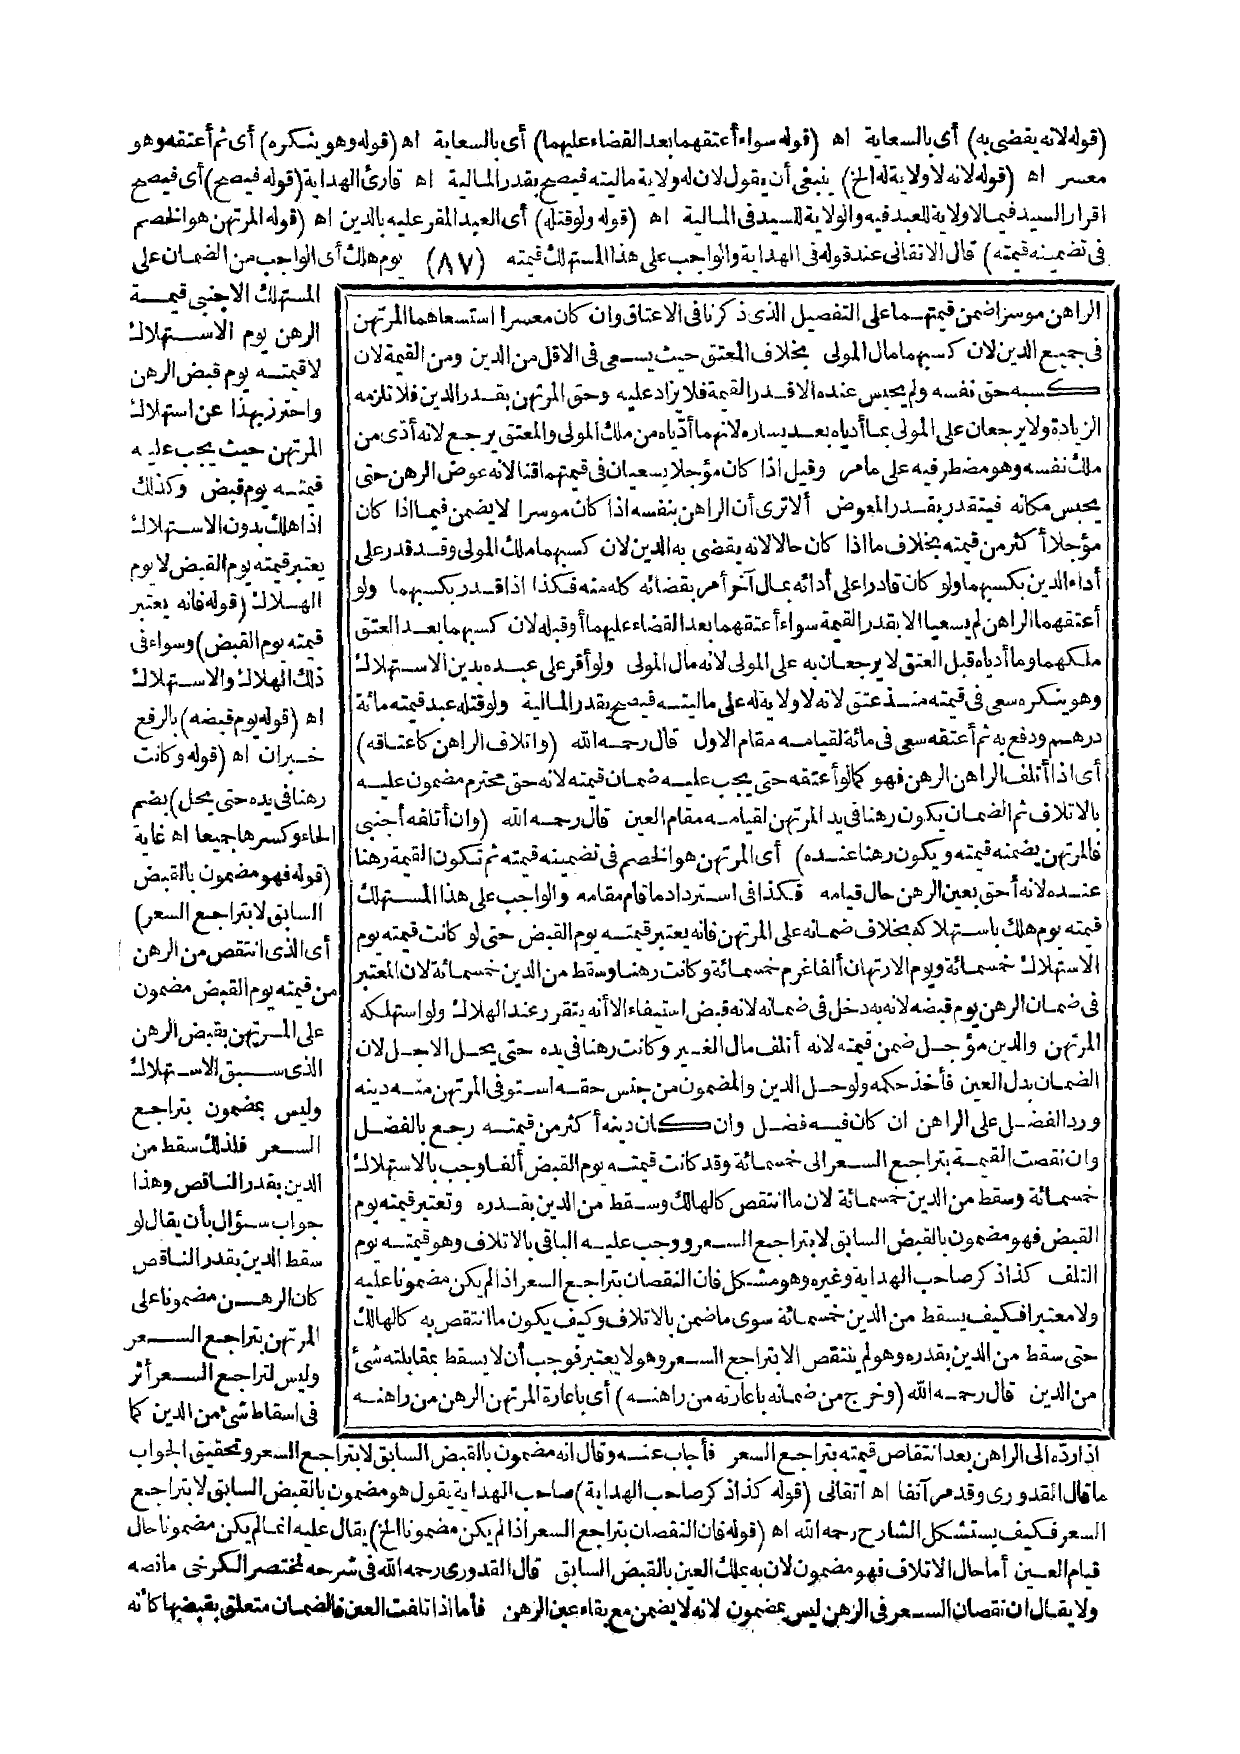 (قوله لانه يقضى به) أى بالسعاية اه (قوله سواء أعتقهما بعد القضاء عليهما) أى بالسعاية اه (قوله وهو ينكره) أى ثم أعتقه وهو
معسر اه (قوله لانه لا ولاية له الخ) ينبغى أن يقول لان له ولاية ماليته فيصح بقدر المالية اه قارئ الهداية (قوله فيصح) أى فيصح
اقرار السيد فيما لا ولاية للعبد فيه والولاية للسيد فى المالية اه (قوله ولو قتله) أى العبد المقر عليه بالدين اه (قوله المرتهن هو الخصم
فى تضمينه قيمته) قال الاتقانى عند قوله فى الهداية والواجب على هذا المستهلك قيمته (٨٧) يوم هلك أى الواجب من الضمان على
المستهلك الاجنبى قيمة
الرهن يوم الاستهلاك
لا قيمته يوم قبض الرهن
واحترز بهذا عن استهلاك
المرتهن حيث يجب عليه
قيمته يوم قبض وكذلك
اذا هلك بدون الاستهلاك
يعتبر قيمته يوم القبض لا يوم
الهلاك (قوله فانه يعتبر
قيمته يوم القبض) وسواء فى
ذلك الهلاك والاستهلاك
اه (قوله يوم قبضه) بالرفع
خبر ان اه (قوله وكانت
رهنا فى يده حتى يحل) بضم
الحاء وكسرها جميعا اه غاية
(قوله فهو مضمون بالقبض
السابق لا بتراجع السعر)
أى الذى انتقص من الرهن
من قيمته يوم القبض مضمون
على المرتهن بقبض الرهن
الذى سبق الاستهلاك
وليس بمضمون بتراجع
السعر فلذلك سقط من
الدين بقدر الناقص وهذا
جواب سؤال بأن يقال لو
سقط الدين بقدر الناقص
كان الرهن مضمونا على
المرتهن بتراجع السعر
وليس لتراجع السعر أثر
فى اسقاط شئ من الدين كما
الراهن موسرا ضمن قيمتهما على التفصيل الذى ذكرنا فى الاعتاق وان كان معسرا استسعاهما المرتهن
فى جميع الدين لان كسبهما مال المولى بخلاف المعتق حيث يسعى فى الاقل من الدين ومن القيمة لان
كسبه حق نفسه ولم يحبس عنده الا قدر القيمة فلا يزاد عليه وحق المرتهن بقدر الدين فلا تلزمه
الزيادة ولا يرجعان على المولى بما أدياه بعد يساره لانهما أدياه من ملك المولى والمعتق يرجع لانه أدى من
ملك نفسه وهو مضطر فيه على ما مر وقيل اذا كان مؤجلا يسعيان فى قيمتهما قنا لانه عوض الرهن حتى
يحبس مكانه فيتقدر بقدر المعوض ألا ترى أن الراهن بنفسه اذا كان موسرا لا يضمن فيما اذا كان
مؤجلا أكثر من قيمته بخلاف ما اذا كان حالا لانه يقضى به الدين لان كسبهما ملك المولى وقد قدر على
أداء الدين بكسبهما ولو كان قادرا على أدائه بمال آخر أمر بقضائه كله منه فكذا اذا قدر بكسبهما ولو
أعتقهما الراهن لم يسعيا الا بقدر القيمة سواء أعتقهما بعد القضاء عليهما أو قبله لان كسبهما بعد العتق
ملكهما وما أدياه قبل العتق لا يرجعان به على المولى لانه مال المولى ولو أقر على عبده بدين الاستهلاك
وهو ينكره سعى فى قيمته منذ عتق لانه لا ولاية له على ماليته فيصح بقدر المالية ولو قتله عبد قيمته مائة
درهم ودفع به ثم أعتقه سعى فى مائة لقيامه مقام الاول قال رحمه الله (واتلاف الراهن كاعتاقه)
أى اذا أتلف الراهن الرهن فهو كما لو أعتقه حتى يجب عليه ضمان قيمته لانه حق محترم مضمون عليه
بالاتلاف ثم الضمان يكون رهنا فى يد المرتهن لقيامه مقام العين قال رحمه الله (وان أتلفه أجنبى
فالمرتهن يضمنه قيمته ويكون رهنا عنده) أى المرتهن هو الخصم فى تضمينه قيمته ثم تكون القيمة رهنا
عنده لانه أحق بعين الرهن حال قيامه فكذا فى استرداد ما قام مقامه والواجب على هذا المستهلك
قيمته يوم هلك باستهلاكه بخلاف ضمانه على المرتهن فانه يعتبر قيمته يوم القبض حتى لو كانت قيمته يوم
الاستهلاك خمسمائة ويوم الارتهان ألفا غرم خمسمائة وكانت رهنا وسقط من الدين خمسمائة لان المعتبر
فى ضمان الرهن يوم قبضه لانه به دخل فى ضمانه لانه قبض استيفاء الا أنه يتقرر عند الهلاك ولو استهلكه
المرتهن والدين مؤجل ضمن قيمته لانه أتلف مال الغير وكانت رهنا فى يده حتى يحل الاجل لان
الضمان بدل العين فأخذ حكمه ولو حل الدين والمضمون من جنس حقه استوفى المرتهن منه دينه
ورد الفضل على الراهن ان كان فيه فضل وان كان دينه أكثر من قيمته رجع بالفضل
وان نقصت القيمة بتراجع السعر الى خمسمائة وقد كانت قيمته يوم القبض ألفا وجب بالاستهلاك
خمسمائة وسقط من الدين خمسمائة لان ما انتقص كالهالك وسقط من الدين بقدره وتعتبر قيمته يوم
القبض فهو مضمون بالقبض السابق لا بتراجع السعر ووجب عليه الباقى بالاتلاف وهو قيمته يوم
التلف كذا ذكر صاحب الهداية وغيره وهو مشكل فان النقصان بتراجع السعر اذا لم يكن مضمونا عليه
ولا معتبرا فكيف يسقط من الدين خمسمائة سوى ما ضمن بالاتلاف وكيف يكون ما انتقص به كالهالك
حتى سقط من الدين بقدره وهو لم ينتقص الا بتراجع السعر وهو لا يعتبر فوجب أن لا يسقط بمقابلته شئ
من الدين قال رحمه الله (وخرج من ضمانه باعارته من راهنه) أى باعارة المرتهن الرهن من راهنه
اذا رده الى الراهن بعد انتقاص قيمته بتراجع السعر فأجاب عنه وقال انه مضمون بالقبض السابق لا بتراجع السعر وتحقيق الجواب
ما قال القدورى وقد مر آنفا اه اتقانى (قوله كذا ذكر صاحب الهداية) صاحب الهداية يقول هو مضمون بالقبض السابق لا بتراجع
السعر فكيف يستشكل الشارح رحمه الله اه (قوله فان النقصان بتراجع السعر اذا لم يكن مضمونا الخ) يقال عليه انما لم يكن مضمونا حال
قيام العين أما حال الاتلاف فهو مضمون لان به ملك العين بالقبض السابق قال القدورى رحمه الله فى شرحه لمختصر الكرخى ما نصه
ولا يقال ان نقصان السعر فى الرهن ليس بمضمون لانه لا يضمن مع بقاء عين الرهن فأما اذا تلفت العين فالضمان متعلق بقبضها كأنه